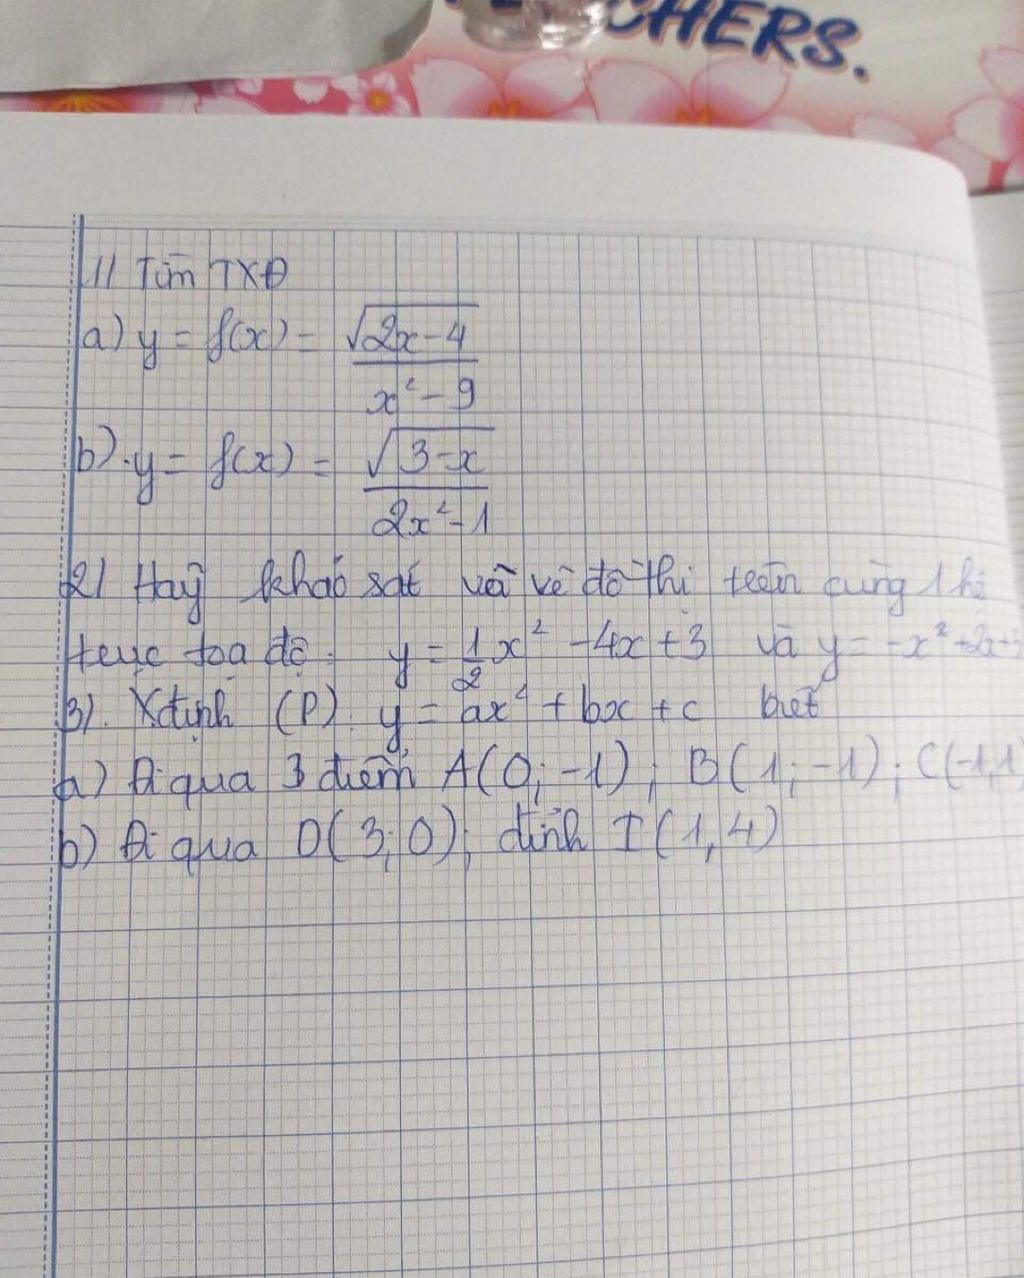 CHERS.
1/ Tìm TXĐ
a) y = f(x) = √(2x-4) / (x² - 9)
b) y = f(x) = √(3-x) / (2x² - 1)
2/ Hãy khảo sát và vẽ đồ thị trên cùng 1 hệ
trục tọa độ: y = 1/2 x² - 4x + 3 và y = -x² + 2x +
3). Xđịnh (P). y = ax² + bx + c biết
a) Đi qua 3 điểm A(0; -1); B(1; -1); C(-1,1)
b) Đi qua D(3;0); đỉnh I(1,4)